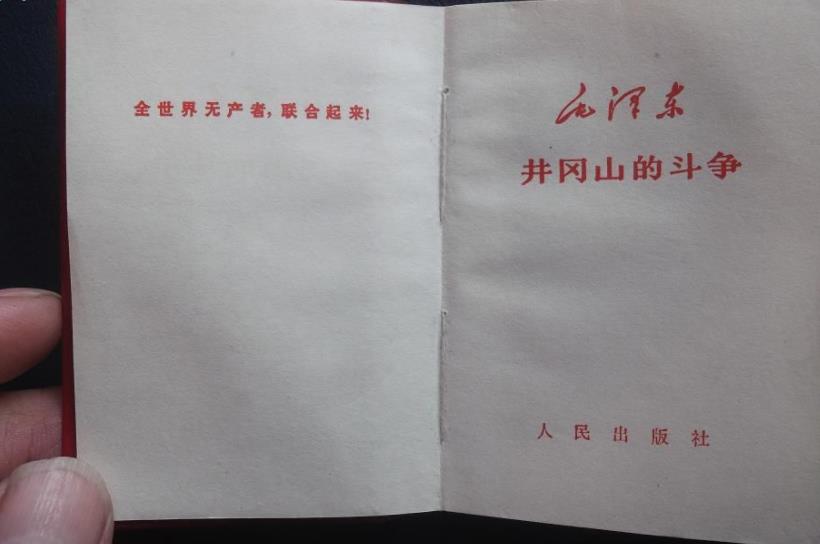 全世界无产者，联合起来！
毛泽东
井冈山的斗争
人民出版社